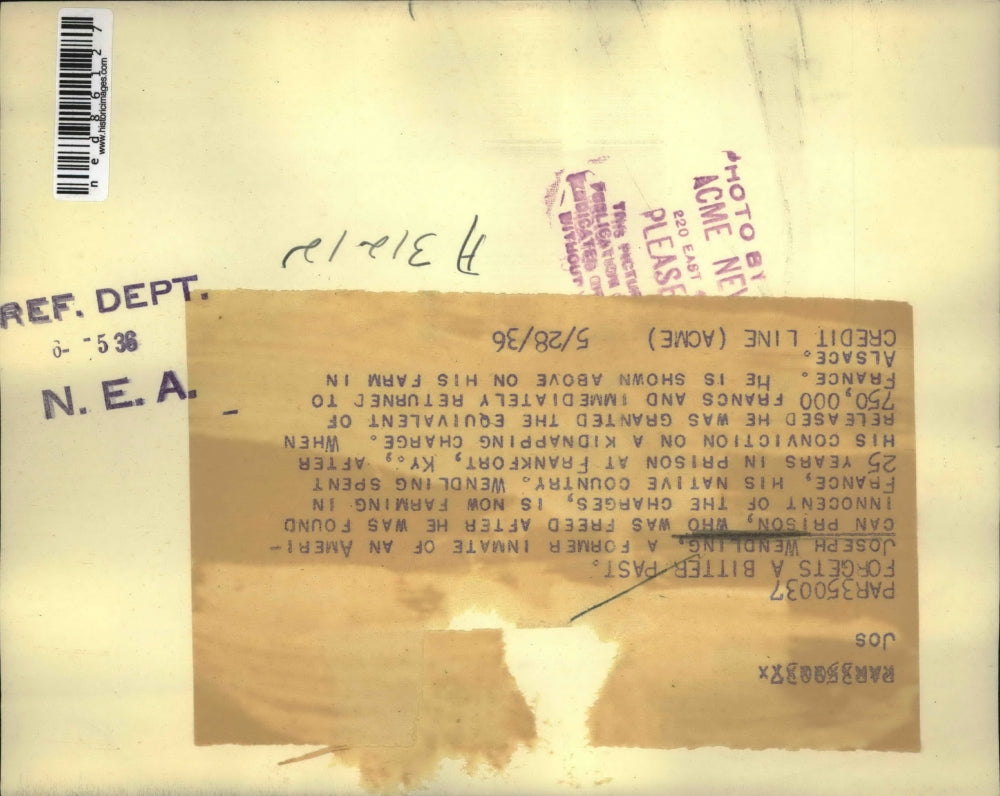 n e d 8 6 1 2 7
www.historicimages.com
PHOTO BY
ACME NEW
220 EAST
PLEASE
THIS PICTUR
PUBLICATION
SYNDICATED
WITHOUT
A 312-12
REF. DEPT.
6- -5 36
N. E. A.
PAR350037x
JOS
PAR350037
FORGETS A BITTER PAST.
JOSEPH WENDLING, A FORMER INMATE OF AN AMERI-
CAN PRISON, WHO WAS FREED AFTER HE WAS FOUND
INNOCENT OF THE CHARGES, IS NOW FARMING IN
FRANCE, HIS NATIVE COUNTRY. WENDLING SPENT
25 YEARS IN PRISON AT FRANKFORT, KY., AFTER
HIS CONVICTION ON A KIDNAPPING CHARGE. WHEN
RELEASED HE WAS GRANTED THE EQUIVALENT OF
750,000 FRANCS AND IMMEDIATELY RETURNED TO
FRANCE. HE IS SHOWN ABOVE ON HIS FARM IN
ALSACE.
CREDIT LINE (ACME) 5/28/36